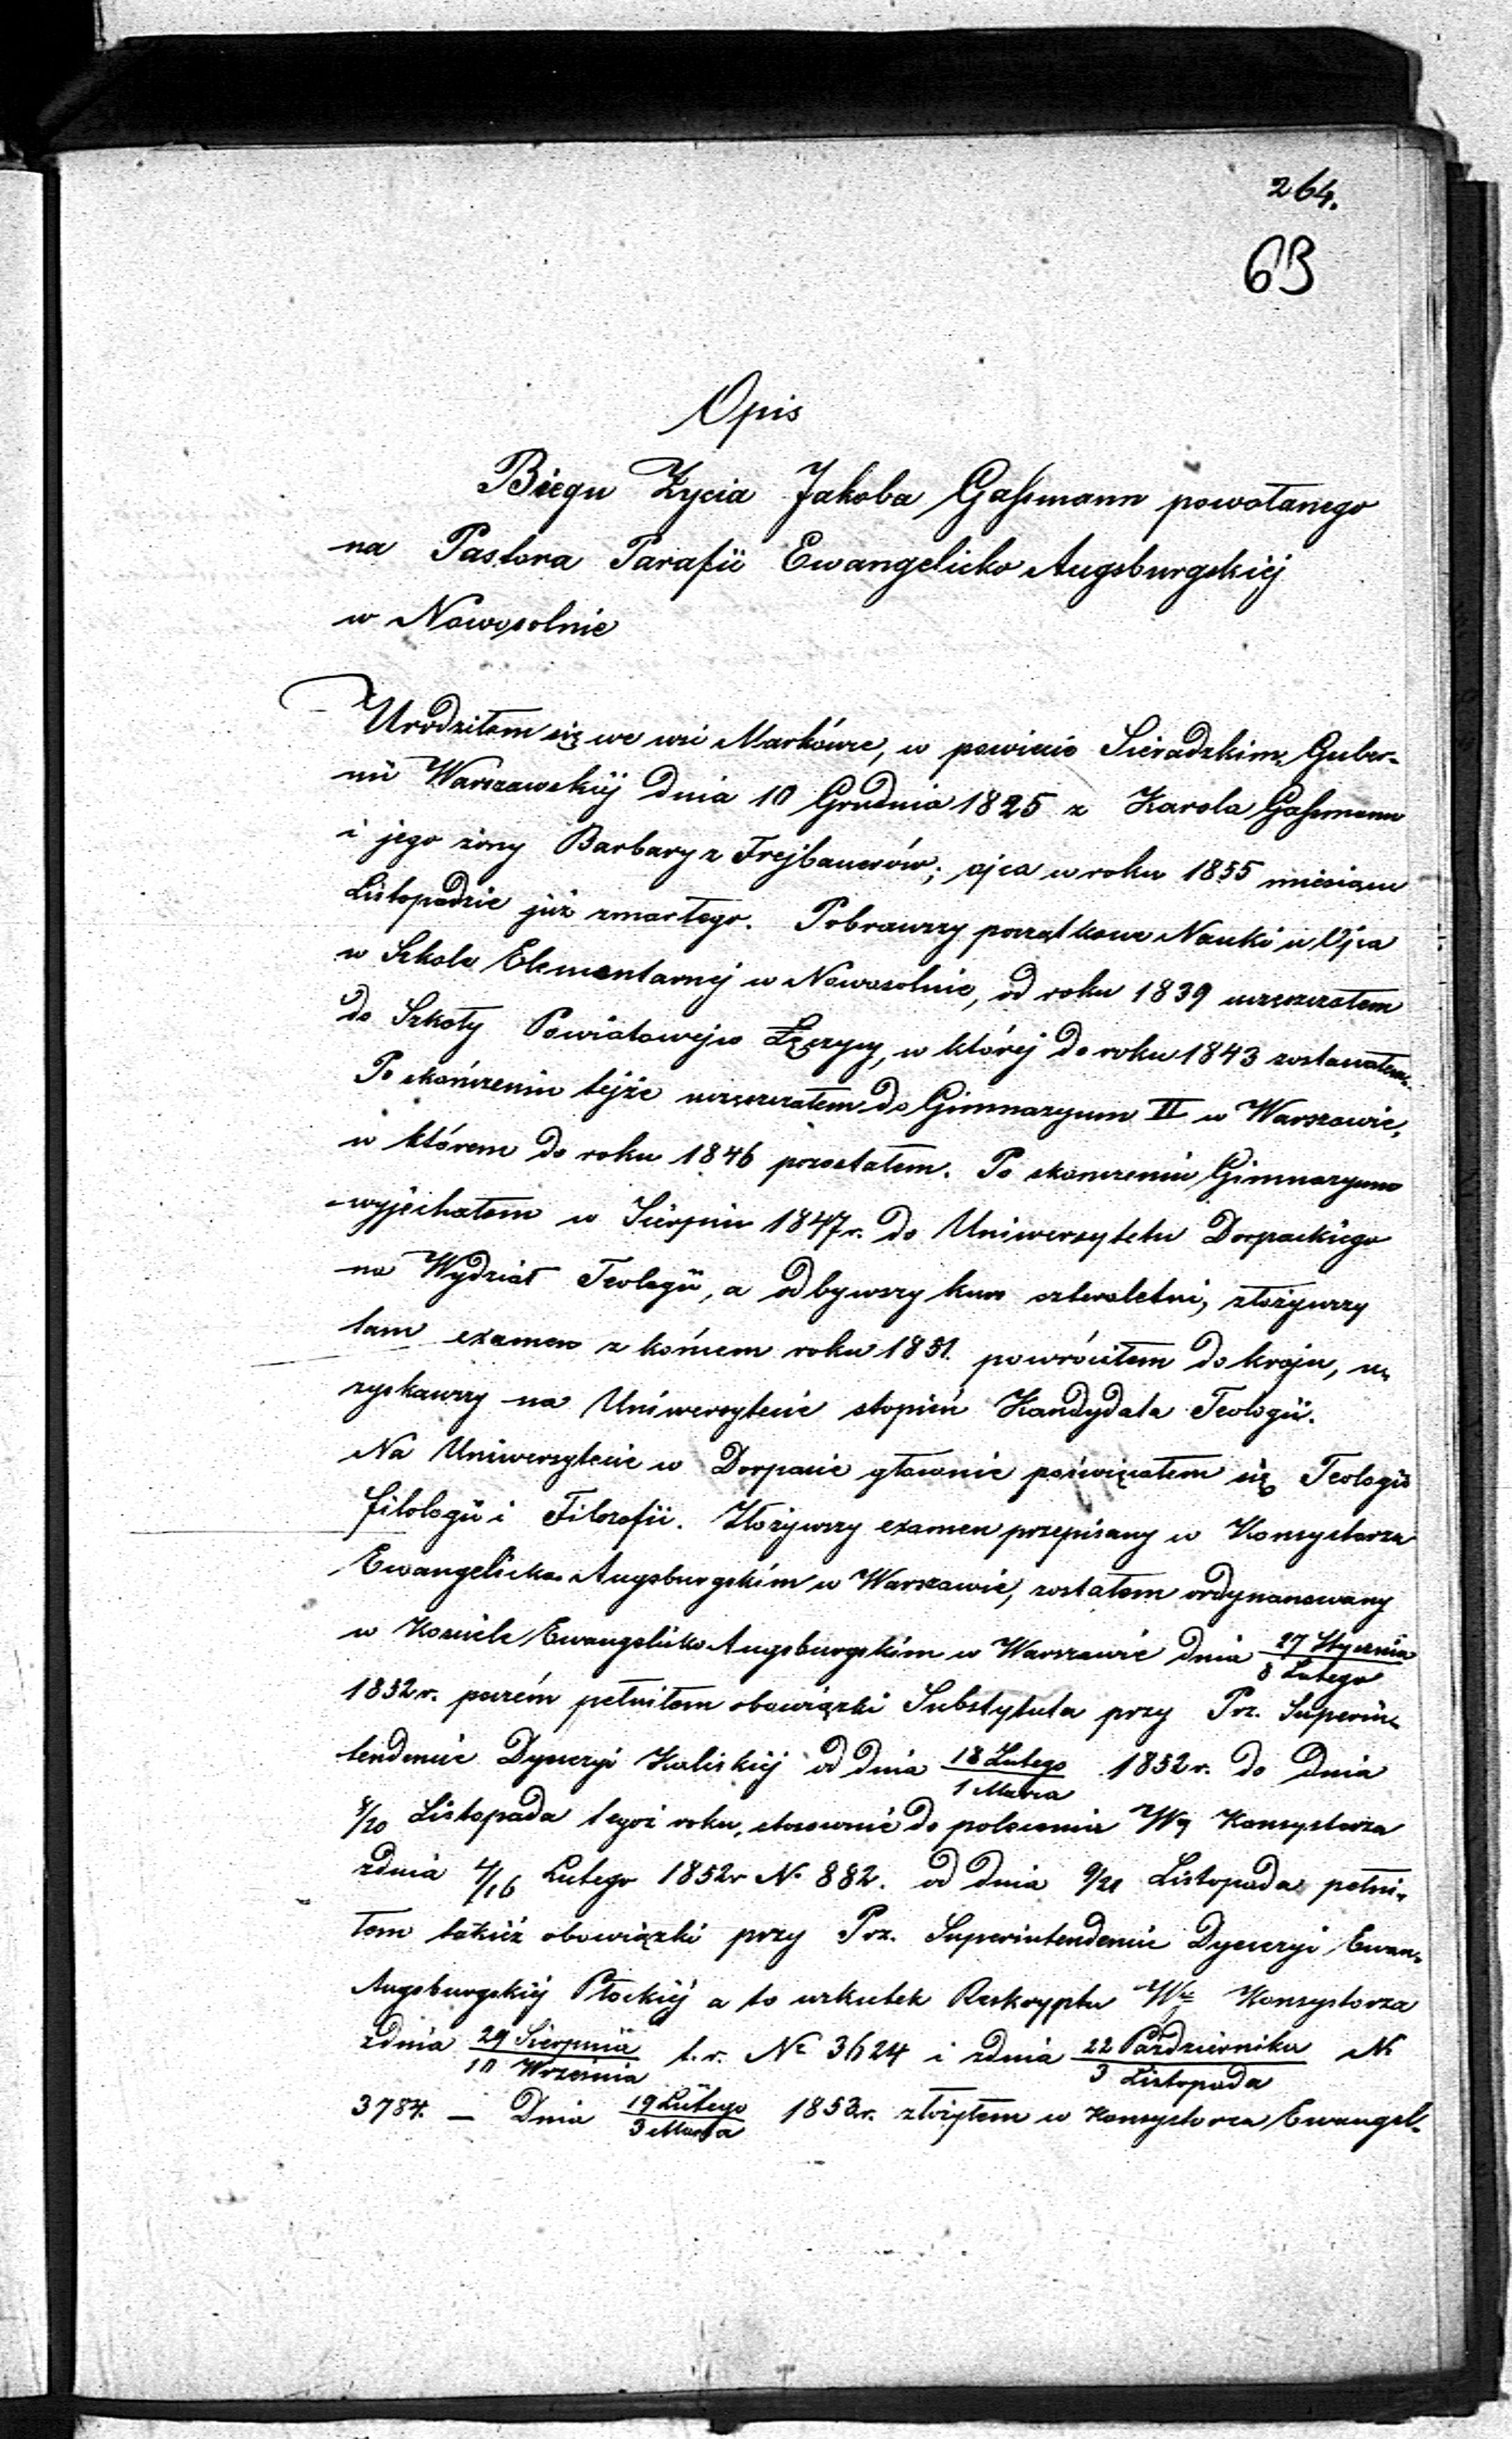 264.
63
Opis
Biegu Życia Jakoba Gaſsmann powołanego
na Pastora Parafii Ewangelicko Augsburgskiéj
w Nowosolnie
Urodziłem się we wsi Markówce, w powiecie Sieradzkim, Guber-
nii Warszawskiéj dnia 10 Grudnia 1825 z Karola Gaſsmann
i jego żony Barbary z Frejbauerów; ojca w roku 1855 miesiącu
Listopadzie już zmarłego. Pobrawszy początkowe Nauki u Ojca
w Szkole Elementarnéj w Nowosolnie, od roku 1839 uczęszczałem
do Szkoły Powiatowéj w Łęczycy, w któréj do roku 1843 zostawałem.
Po skończeniu tejże uczęszczałem do Gimnazyum II w Warszawie,
w którem do roku 1846 pozostałem. Po skonczeniu Gimnazyum
wyjechałem w Sierpniu 1847 r. do Uniwersytetu Dorpackiego
na Wydział Teologii, a odbywszy kurs czteroletni, złożywszy
tam examen z końcem roku 1851. powróciłem do kraju, u-
zyskawszy na Uniwersytecie stopień Kandydata Teologii.
Na Uniwersytecie w Dorpacie głównie poświęcałem się Teologii
filologii i Filozofii. Złożywszy examen przepisany w Konsystorzu
Ewangelicko Augsburgskim w Warszawie, zostałem ordynanowany
w Kościele Ewangelicko Augsburgskim w Warszawie dnia 27 Stycznia / 8 Lutego
1852 r. poczém pełniłem obowiązki Substytuta przy Prz. Superin-
tendencie Dyecezyi Kaliskiéj od dnia 18 Lutego / 1 Marca 1852 r. do dnia
8/20 Listopada tegoż roku, stosownie do polecenia Wg Konsystorza
zdnia 4/16 Lutego 1852 r N. 882. od dnia 9/21 Listopada pełni-
łem takież obowiązki przy Prz. Superintendencie Dyecezyi Ewan-
Augsburgskiéj Płockiéj a to wskutek Reskryptu Konsystorza
zdnia 29 Sierpnia / 10 Września t. r. N. 3624 i zdnia 22 Października / 3 Listopada N.
3784. — Dnia 19 Lutego / 3 Marca 1853 r. złożyłem w Konsystorzu Ewangel-